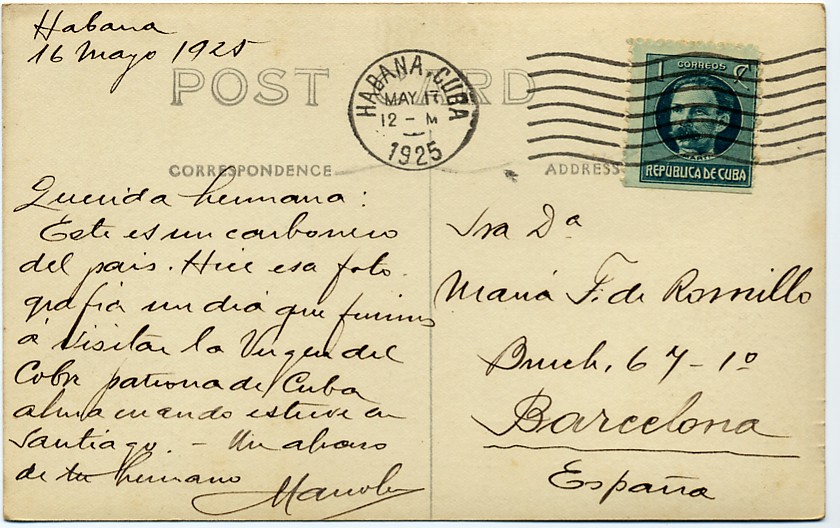 Habana
16 Mayo 1925
POST CARD
HABANA, CUBA
MAY 17
12 - M
1925
1 CORREOS ¢
MARTI
REPÚBLICA DE CUBA
CORRESPONDENCE
ADDRESS
Querida hermana:
Este es un carbonero
del pais. Hice esa foto
grafia un dia que fuimos
á visitar la Virgen del
Cobre patrona de Cuba
cuando estuve en
Santiago. - Un abrazo
de tu hermano
Manolo
Sra Dª
Maria F. de Romillo
Bruch, 67-1º
Barcelona
España